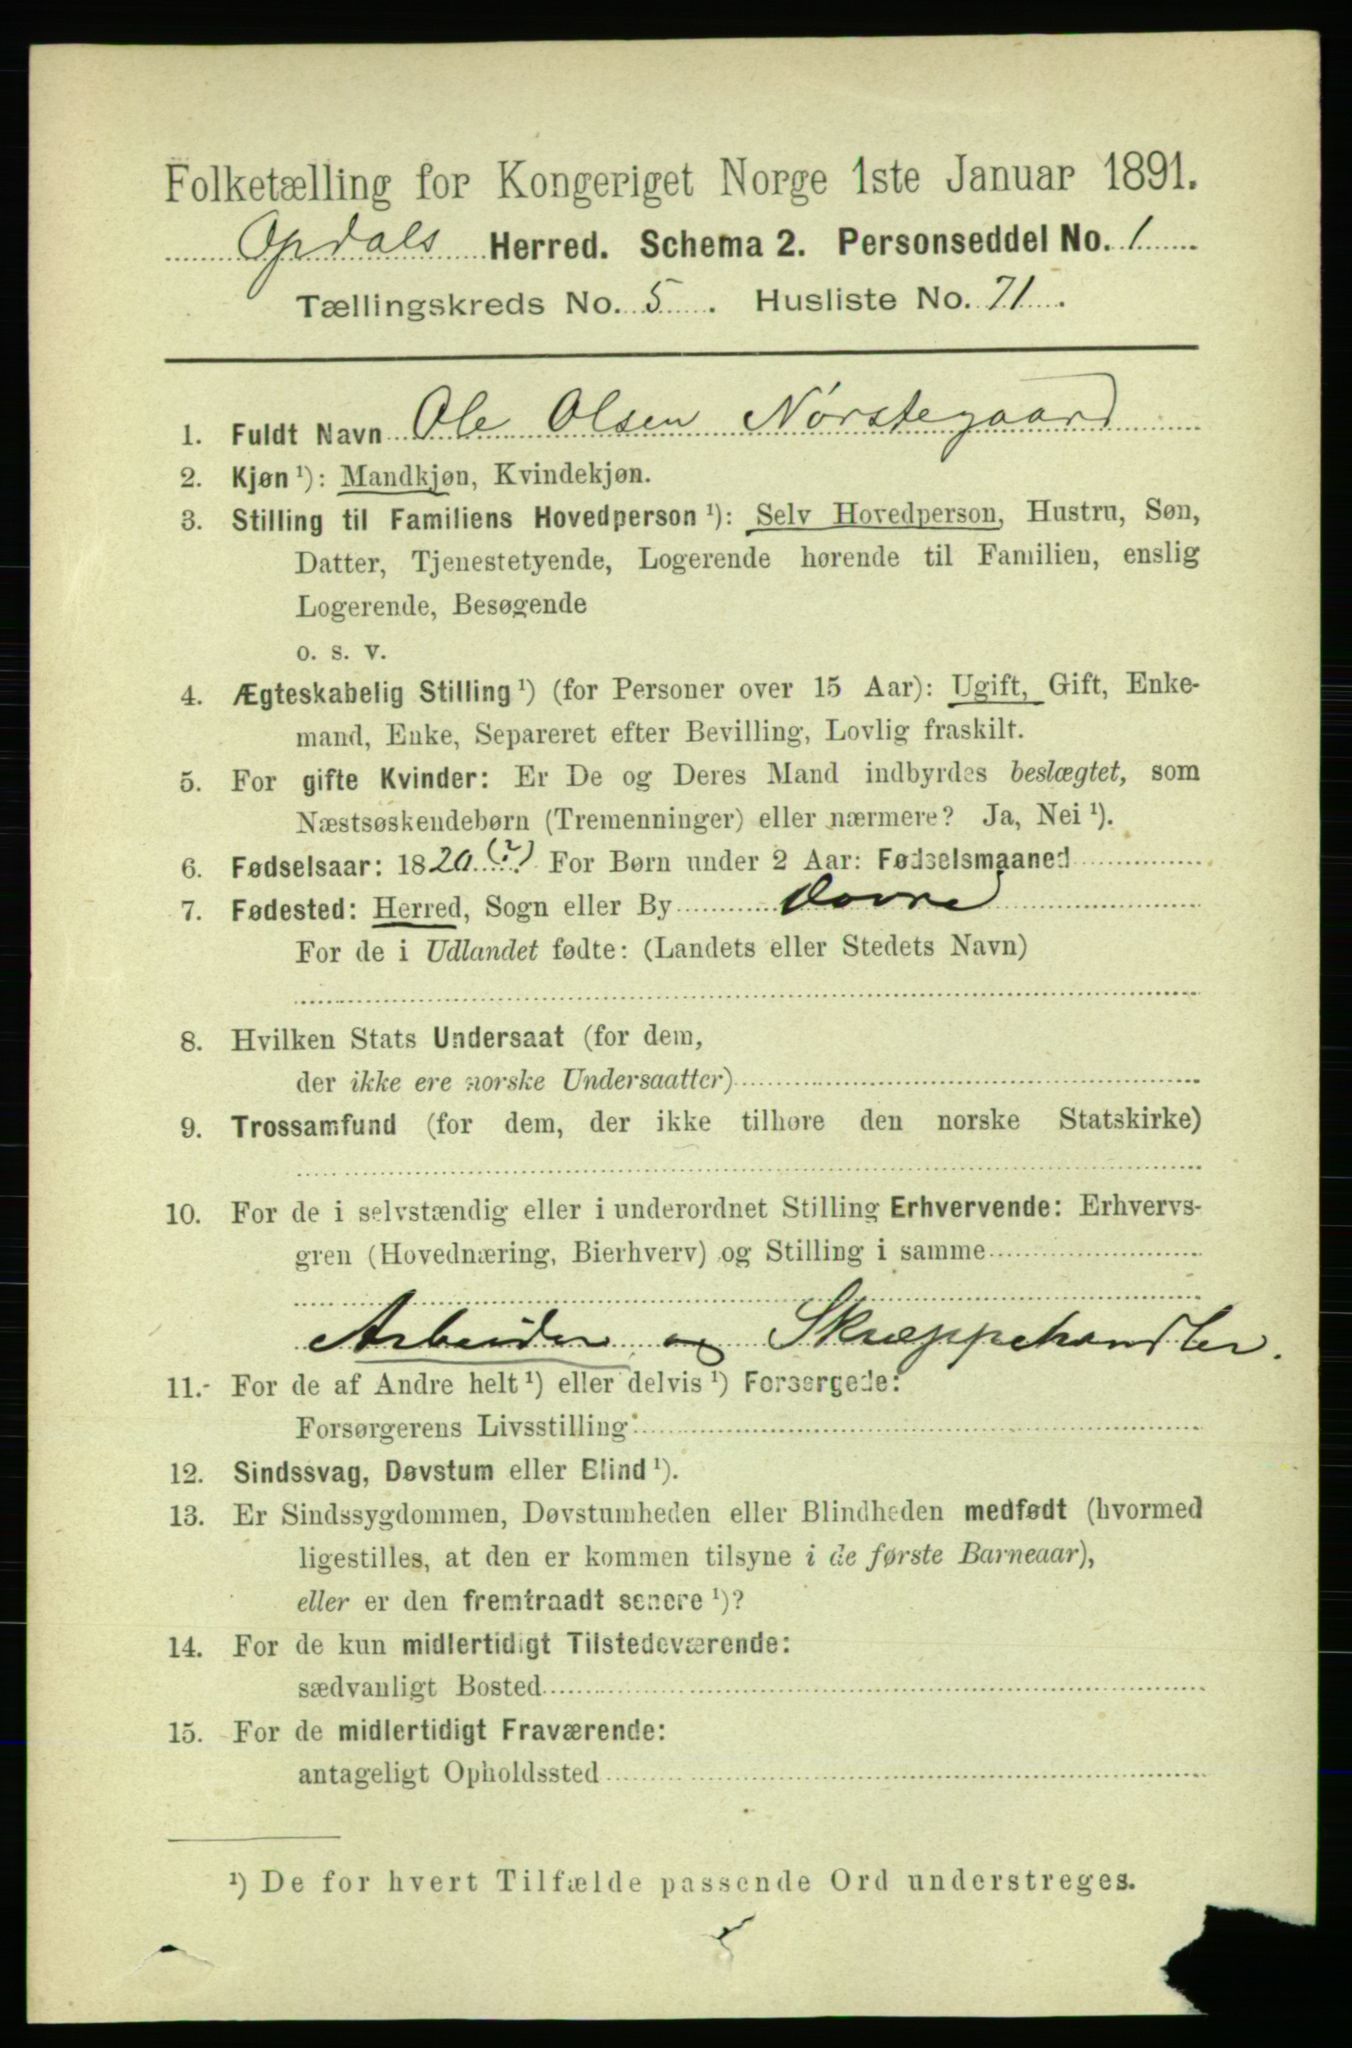 Folketælling for Kongeriget Norge 1ste Januar 1891.
Opdals Herred. Schema 2. Personseddel No. 1
Tællingskreds No. 5. Husliste No. 71.
1. Fuldt Navn Ole Olsen Nórstegaard
2. Kjøn ¹): Mandkjøn, Kvindekjøn.
3. Stilling til Familiens Hovedperson ¹): Selv Hovedperson, Hustru, Søn,
Datter, Tjenestetyende, Logerende hørende til Familien, enslig
Logerende, Besøgende
o. s. v.
4. Ægteskabelig Stilling ¹) (for Personer over 15 Aar): Ugift, Gift, Enke-
mand, Enke, Separeret efter Bevilling, Lovlig fraskilt.
5. For gifte Kvinder: Er De og Deres Mand indbyrdes beslægtet, som
Næstsøskendebørn (Tremenninger) eller nærmere? Ja, Nei ¹).
6. Fødselsaar: 1820 (?) For Børn under 2 Aar: Fødselsmaaned
7. Fødested: Herred, Sogn eller By Dovre
For de i Udlandet fødte: (Landets eller Stedets Navn)
8. Hvilken Stats Undersaat (for dem,
der ikke ere norske Undersaatter)
9. Trossamfund (for dem, der ikke tilhøre den norske Statskirke)
10. For de i selvstændig eller i underordnet Stilling Erhvervende: Erhvervs-
gren (Hovednæring, Bierhverv) og Stilling i samme
Arbeider og Skræppehandler.
11. For de af Andre helt ¹) eller delvis ¹) Forsørgede:
Forsørgerens Livsstilling
12. Sindssvag, Døvstum eller Blind ¹).
13. Er Sindssygdommen, Døvstumheden eller Blindheden medfødt (hvormed
ligestilles, at den er kommen tilsyne i de første Barneaar),
eller er den fremtraadt senere ¹)?
14. For de kun midlertidigt Tilstedeværende:
sædvanligt Bosted
15. For de midlertidigt Fraværende:
antageligt Opholdssted
¹) De for hvert Tilfælde passende Ord understreges.